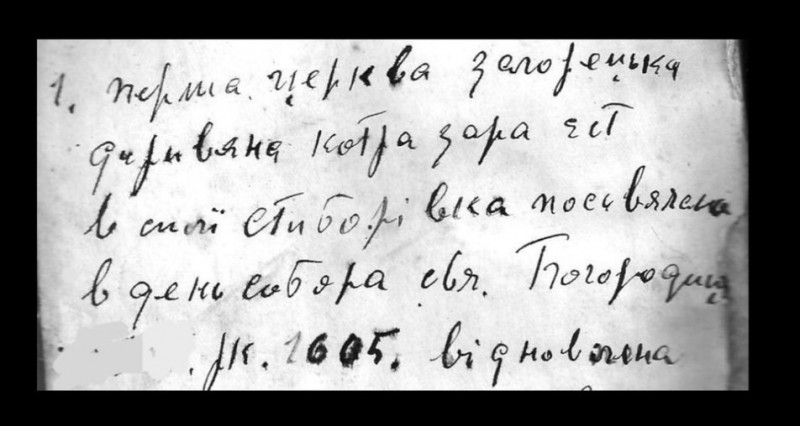 1. перша церква загорецька
диривяна котра зара єст
в силї Стиборівка посивячена
в день собора свя. Богородиц
рк. 1605. відновлена